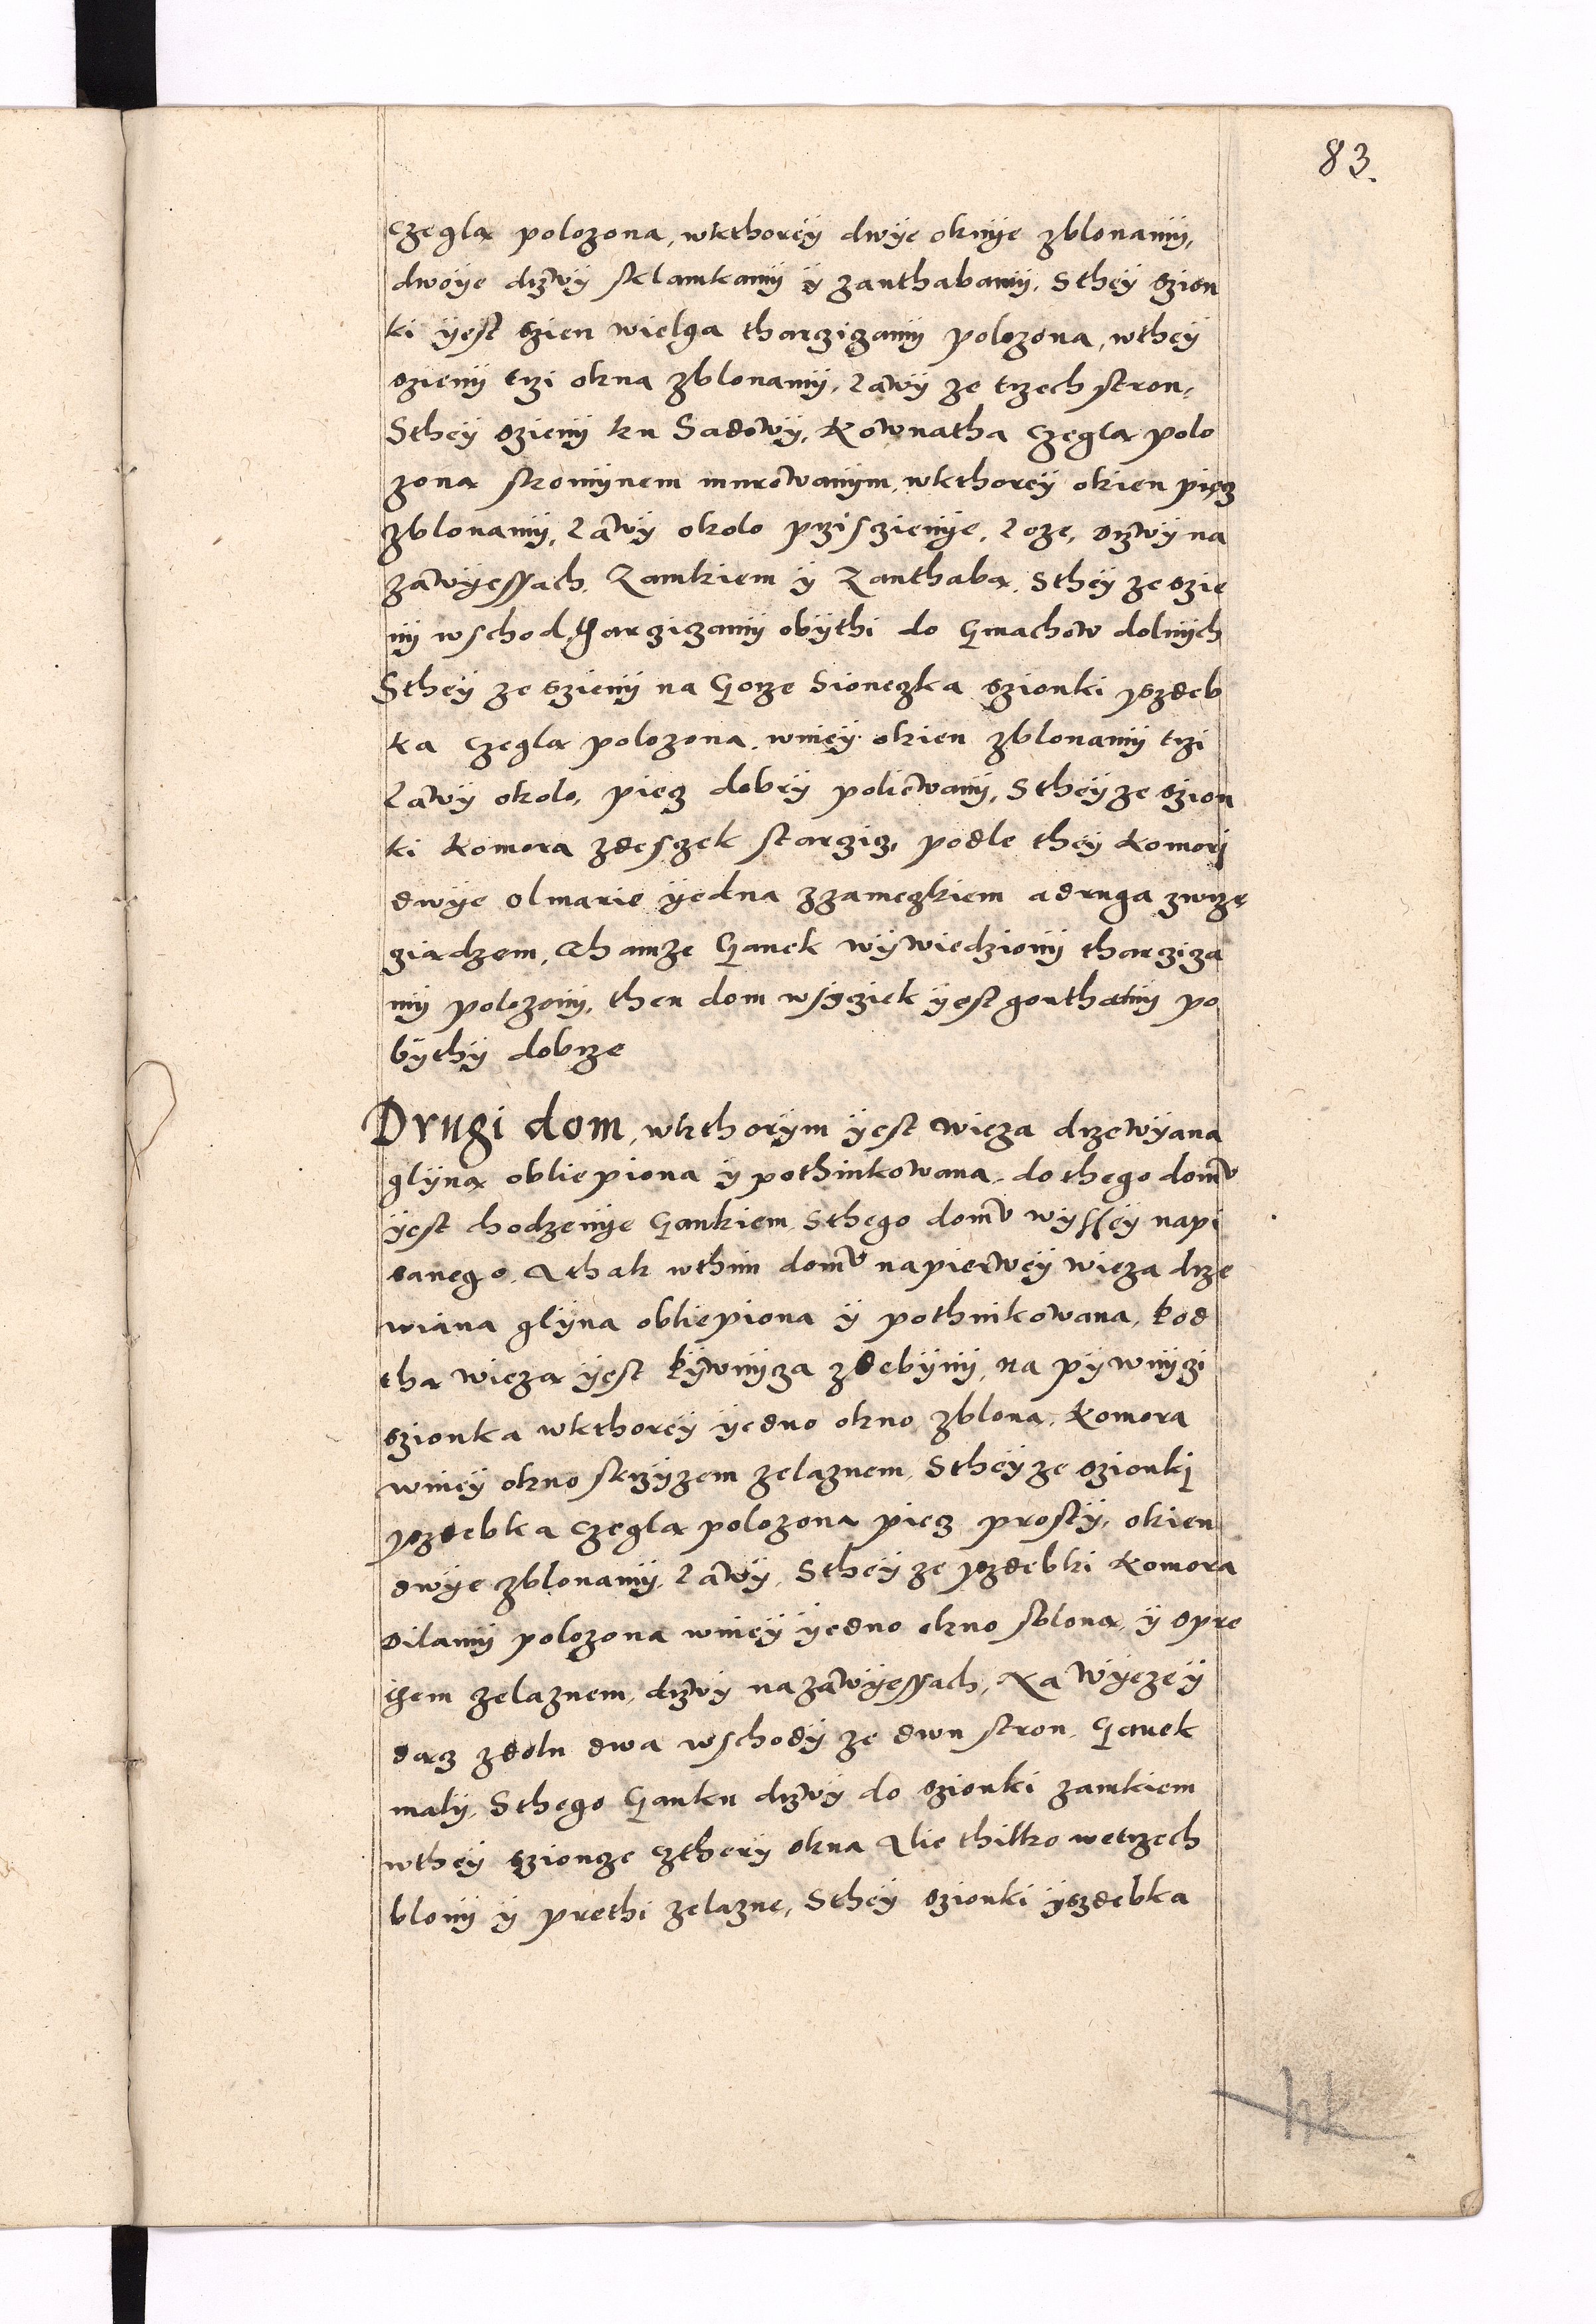 83.
czegla polozona, wkthorey dwye oknye zblonamy,
dwoye drzwy sklamkamy y zanthabamy. Sthey szien
ki yest szien wielga tharzizamy polozona, wthey
szieny trzi okna zblonamy, Lawy ze trzech stron,
Sthey szieny ku Sadowy, Kownatha czegla polo
zona skomynem murowanym, wkthorey okien piecz
zblonamy, Lawy okolo przi sczienye, Loze, drzwy na
zawyessach. Zamkiem y Zanthaba. Sthey ze szie
ny wschod, tharzizamy obythi do Gmachow dolnych
Sthey ze szieny na Gorze Sioneczka szionki yszdeb
ka czegla polozona, wniey okien zblonamy trzi
Lawy okolo, piecz dobry poliewany, Sthey ze szion
ki Komora zdesczek starzicz, podle they Komori
dwye olmarie yedna zzameczkiem a druga zwrze
ziadzem, Thamze Ganek wywiedziony tharziza
my polozony, then dom wsyziek yest gonthamy po
bythy dobrze
Drugi dom, wkthorym yest wieza drzewyana
glyna obliepiona y pothinkowana, do thego domu
yest chodzenye Gankiem Sthego domu wyssey napi
sanego, A thak wthim domu napierwey wieza drze
wiana glyna obliepiona y pothinkowana, Pod
tha wieza yest Pywnyza zdebyny, na pywnyzi
szionka wkthorey yedno okno zblona, Komora
wniey okno skrzyzem zelaznem, Sthey ze szionki
yszdebka czegla polozona piecz prosty, okien
dwye zblonamy, Lawy, Sthey ze yszdebki Komora
dilamy polozona wniey yedno okno sblona, y spre
them zelaznem, drzwy na zawyessach, Na Wyezey
darz zdolu dwa wschody ze dwu stron, Ganek
maly, Sthego Ganku drzwy do szionki zamkiem
wthey szionze czthery okna Alie thilko wetrzech
blony y prethi zelazne, Sthey szionki yszdebka
hk